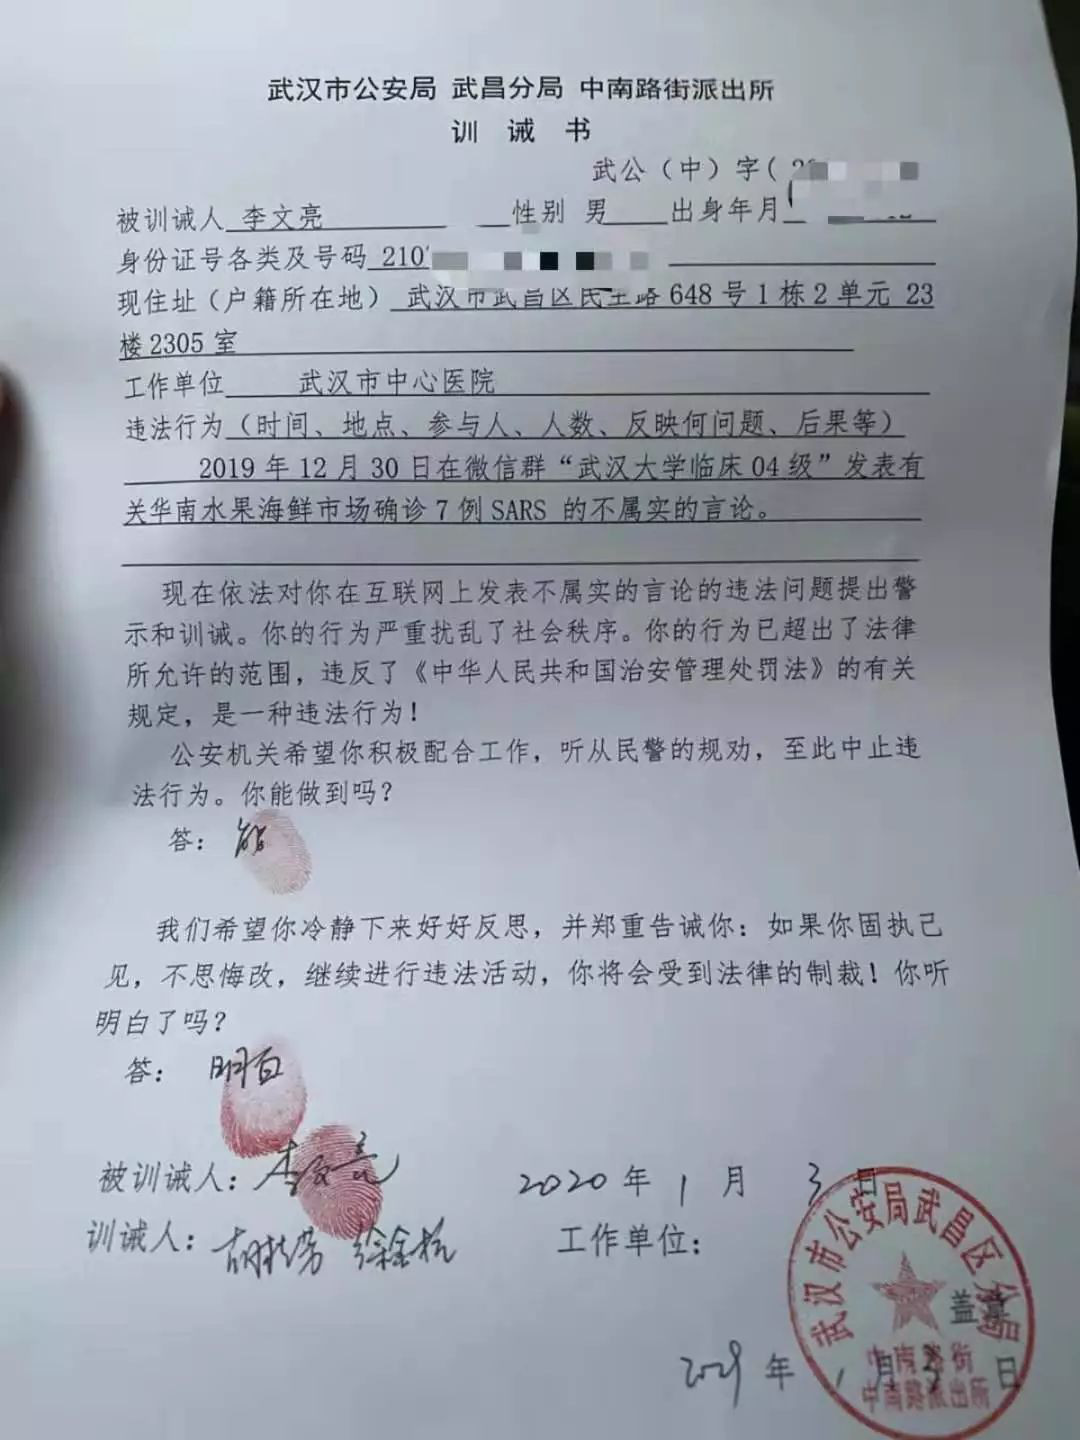 武汉市公安局 武昌分局 中南路街派出所
训 诫 书
武公（中）字(
被训诫人 李文亮 性别 男 出身年月
身份证号各类及号码 210
现住址（户籍所在地） 武汉市武昌区民主路 648 号 1 栋 2 单元 23
楼 2305 室
工作单位 武汉市中心医院
违法行为（时间、地点、参与人、人数、反映何问题、后果等）
2019 年 12 月 30 日在微信群“武汉大学临床 04 级”发表有
关华南水果海鲜市场确诊 7 例 SARS 的不属实的言论。
现在依法对你在互联网上发表不属实的言论的违法问题提出警
示和训诫。你的行为严重扰乱了社会秩序。你的行为已超出了法律
所允许的范围，违反了《中华人民共和国治安管理处罚法》的有关
规定，是一种违法行为！
公安机关希望你积极配合工作，听从民警的规劝，至此中止违
法行为。你能做到吗？
答： 能
我们希望你冷静下来好好反思，并郑重告诫你：如果你固执己
见，不思悔改，继续进行违法活动，你将会受到法律的制裁！你听
明白了吗？
答： 明白
被训诫人：李文亮 2020 年 1 月 3 日
训诫人： 工作单位：
武汉市公安局武昌区分局
盖章
中南路街
中南路派出所
年 1 月 3 日